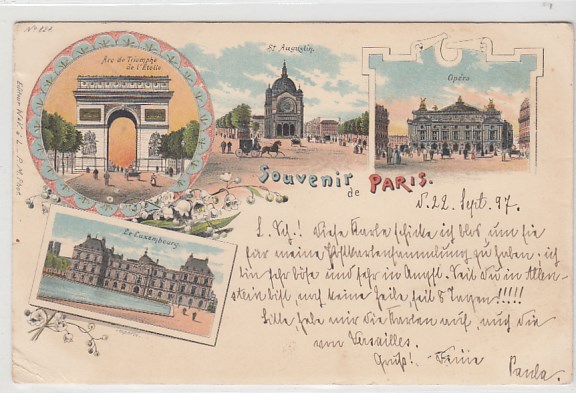 No 121.
Arc de Triomphe
de l'Etoile
St Augustin
Opéra
Souvenir
de PARIS.
Le Luxembourg
d. 22. Sept. 97.
L. Sch.! Diese Karte schicke ich blos um sie
für meine Postkartensammlung zu haben. ich
bin sehr böse und sehr in Angst. Seit du in Allen-
stein bist, noch keine Zeile seit 8 Tagen!!!!!
Bitte hebe mir die Karten auf, auch die
von Versailles.
Gruß! Deine
Paula.